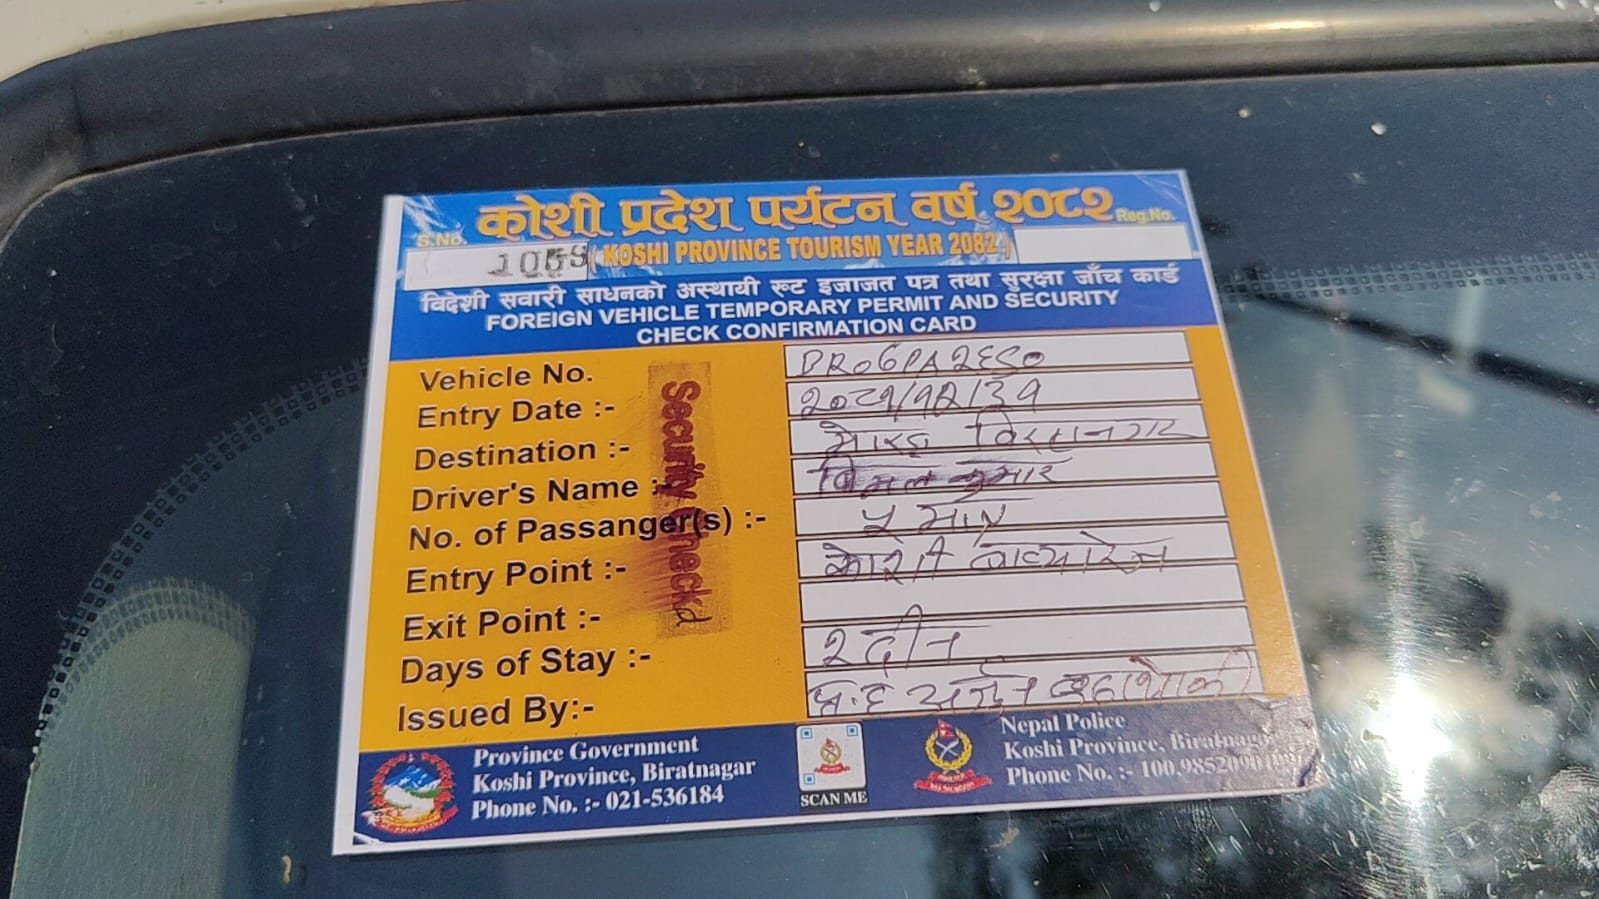 कोशी प्रदेश पर्यटन वर्ष २०८२
S.No. Reg.No.
1053 ( KOSHI PROVINCE TOURISM YEAR 2082 )
विदेशी सवारी साधनको अस्थायी रूट इजाजत पत्र तथा सुरक्षा जाँच कार्ड
FOREIGN VEHICLE TEMPORARY PERMIT AND SECURITY
CHECK CONFIRMATION CARD
Vehicle No. BR06PA२६९०
Entry Date :- २०८१/१२/३१
Destination :- मोरङ विराटनगर
Driver's Name :- विमल कुमार
No. of Passanger(s) :- ५
Entry Point :- कोशी
Exit Point :-
Days of Stay :- २ दीन
Issued By:-
Security Check d
Province Government
Koshi Province, Biratnagar
Phone No. :- 021-536184
SCAN ME
Nepal Police
Koshi Province, Biratnagar
Phone No. :- 100,